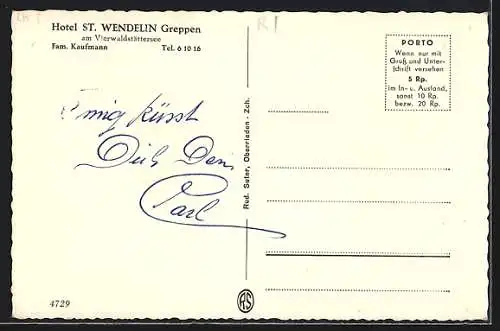 Hotel ST. WENDELIN Greppen
am Vierwaldstättersee
Fam. Kaufmann Tel. 6 10 16
R
PORTO
Wenn nur mit
Gruß und Unter-
schrift versehen
5 Rp.
im In- u. Ausland,
sonst 10 Rp.
bezw. 20 Rp.
küsst
Dich Dein
Carl
Rud. Suter, Oberrieden - Zch.
4729
RS